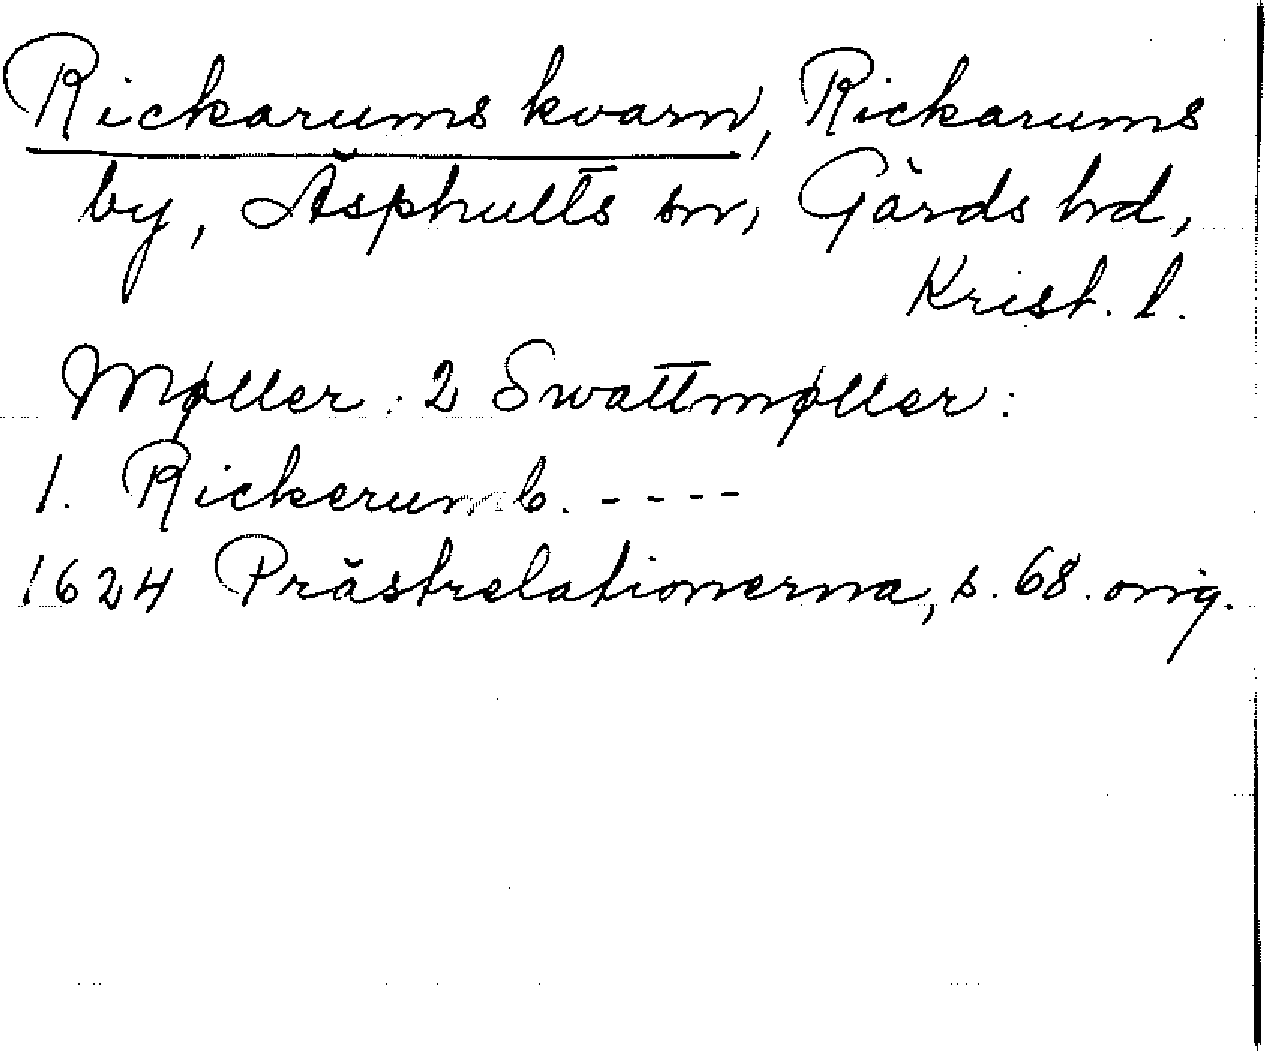 Rickarums kvarn, Rickarums
by, Äsphults sn, Gärds hd,
Krist. l.
Møller: 2 Swattmøller:
1. Rickerum b. ----
1624 Prästrelationerna, s. 68. orig.